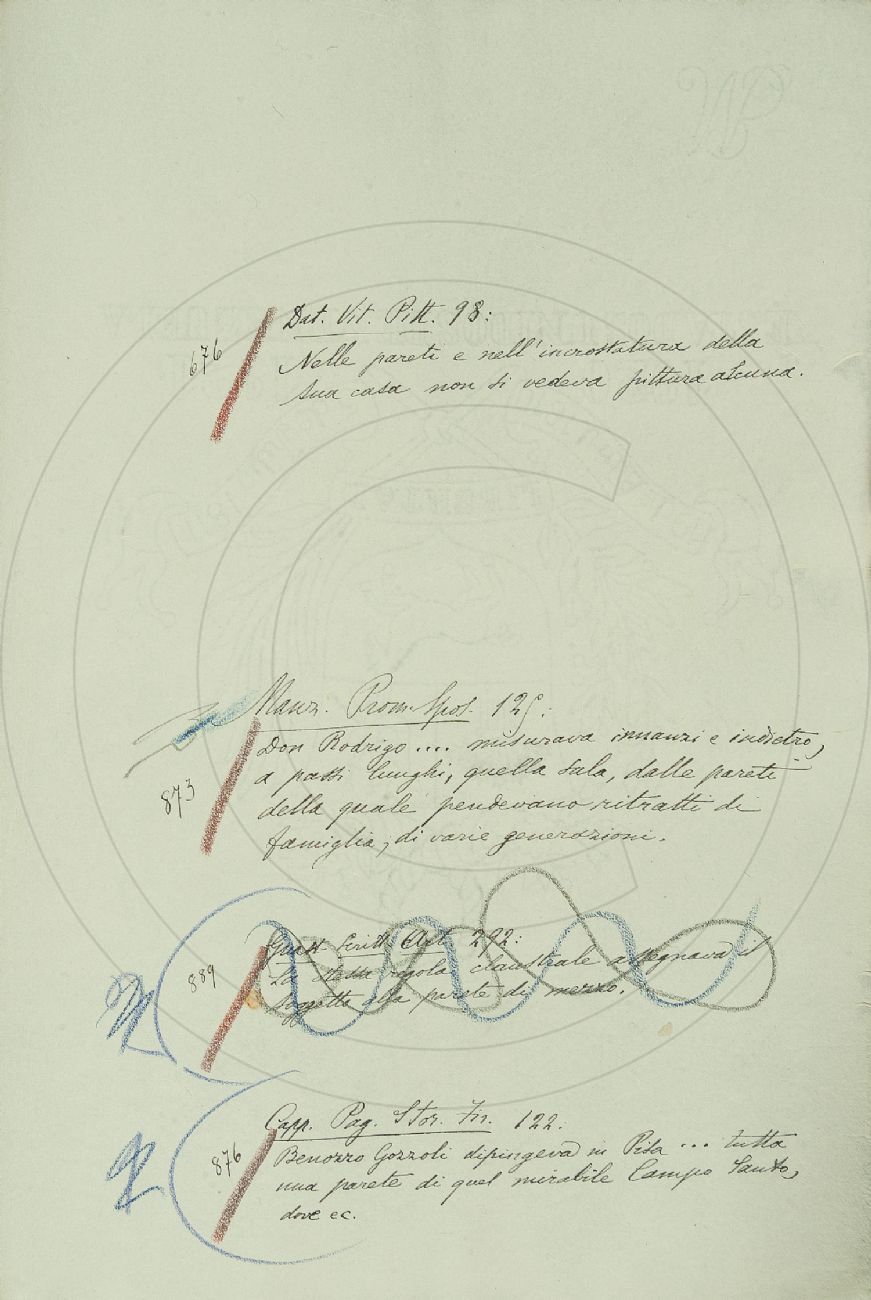 676
Dat. Vit. Pitt. 98:
Nelle pareti e nell'incrostatura della
sua casa non si vedeva pittura alcuna.
873
Manz. Prom. Spos. 125:
Don Rodrigo .... misurava innanzi e indietro,
a passi lunghi, quella sala, dalle pareti
della quale pendevano ritratti di
famiglia, di varie generazioni.
889
Guast. Scritt. Art. 292:
La stessa regola claustrale assegnava il
soggetto alla parete di mezzo.
876
Capp. Pag. Stor. Fir. 122.
Benozzo Gozzoli dipingeva in Pisa ... tutta
una parete di quel mirabile Campo Santo,
dove ec.